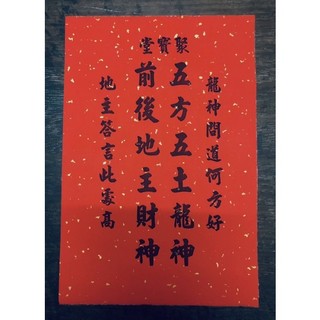 聚寳堂
龍神問道何方好
五方五土龍神
前後地主財神
地主答言此處高